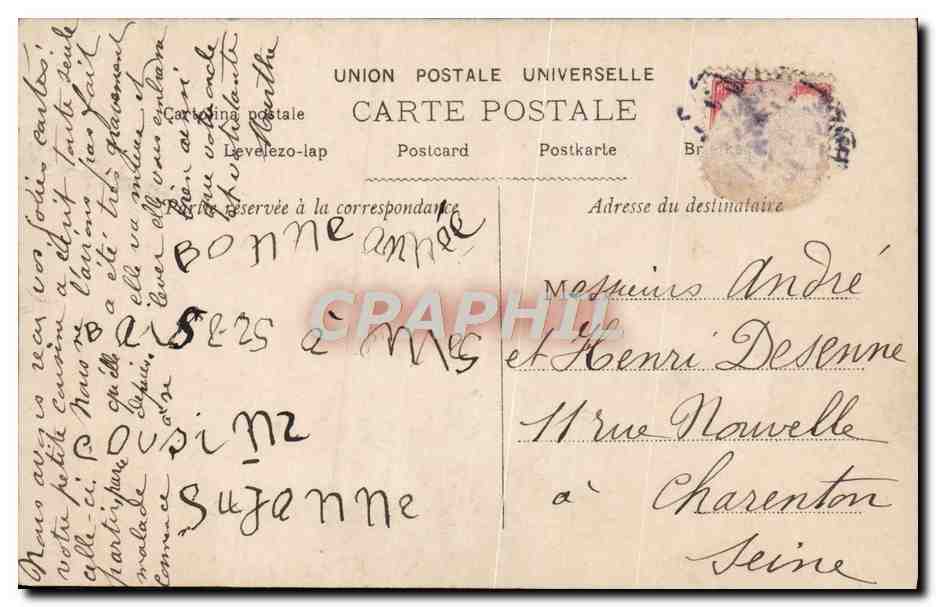 UNION POSTALE UNIVERSELLE
CARTE POSTALE
Cartolina postale
Levelezo-lap Postcard Postkarte
Partie réservée à la correspondance
Adresse du destinataire
BONNE ANNÉE
à MES
COUSINS
SUZANNE
Messieurs André
et Henri Desenne
11 rue Nouvelle
à Charenton
Seine
Nous avons reçu vos jolies cartes
votre petite cousine a écrit toute seule
celle-ci. Nous ne l'avons pas fait
partir parce qu'elle a été très gravement
malade depuis, elle va mieux et
commence à se lever elle vous embrasse
bien ainsi
que votre oncle
et votre tante
Marthe
CPAPHIL